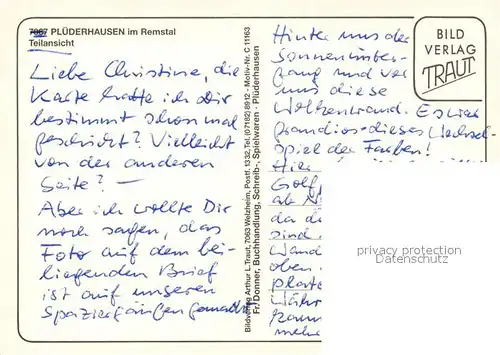 7067 PLÜDERHAUSEN im Remstal
Teilansicht
Liebe Christine, die
Karte hatte ich Dir
bestimmt schon mal
geschickt? Vielleicht
von der anderen
Seite? —
Aber ich wollte Dir
noch sagen, das
Foto auf dem bei-
liegenden Brief
ist auf unseren
Spaziergängen gemacht!
Bildverlag Arthur L. Traut, 7063 Welzheim, Postf. 1332, Tel. (07182) 8912 - Motiv-Nr. C 11163
Fr. Donner, Buchhandlung, Schreib-, Spielwaren · Plüderhausen
Hinter uns der
Sonnenunter-
gang und vor
uns diese
Wolkenwand. Es war
grandios - dieses Wechsel-
spiel der Farben!
Hier
Golf
als
da di
sind
Wand
oben.
plat
Währ
kann
mehr
BILD
VERLAG
TRAUT
privacy protection
Datenschutz